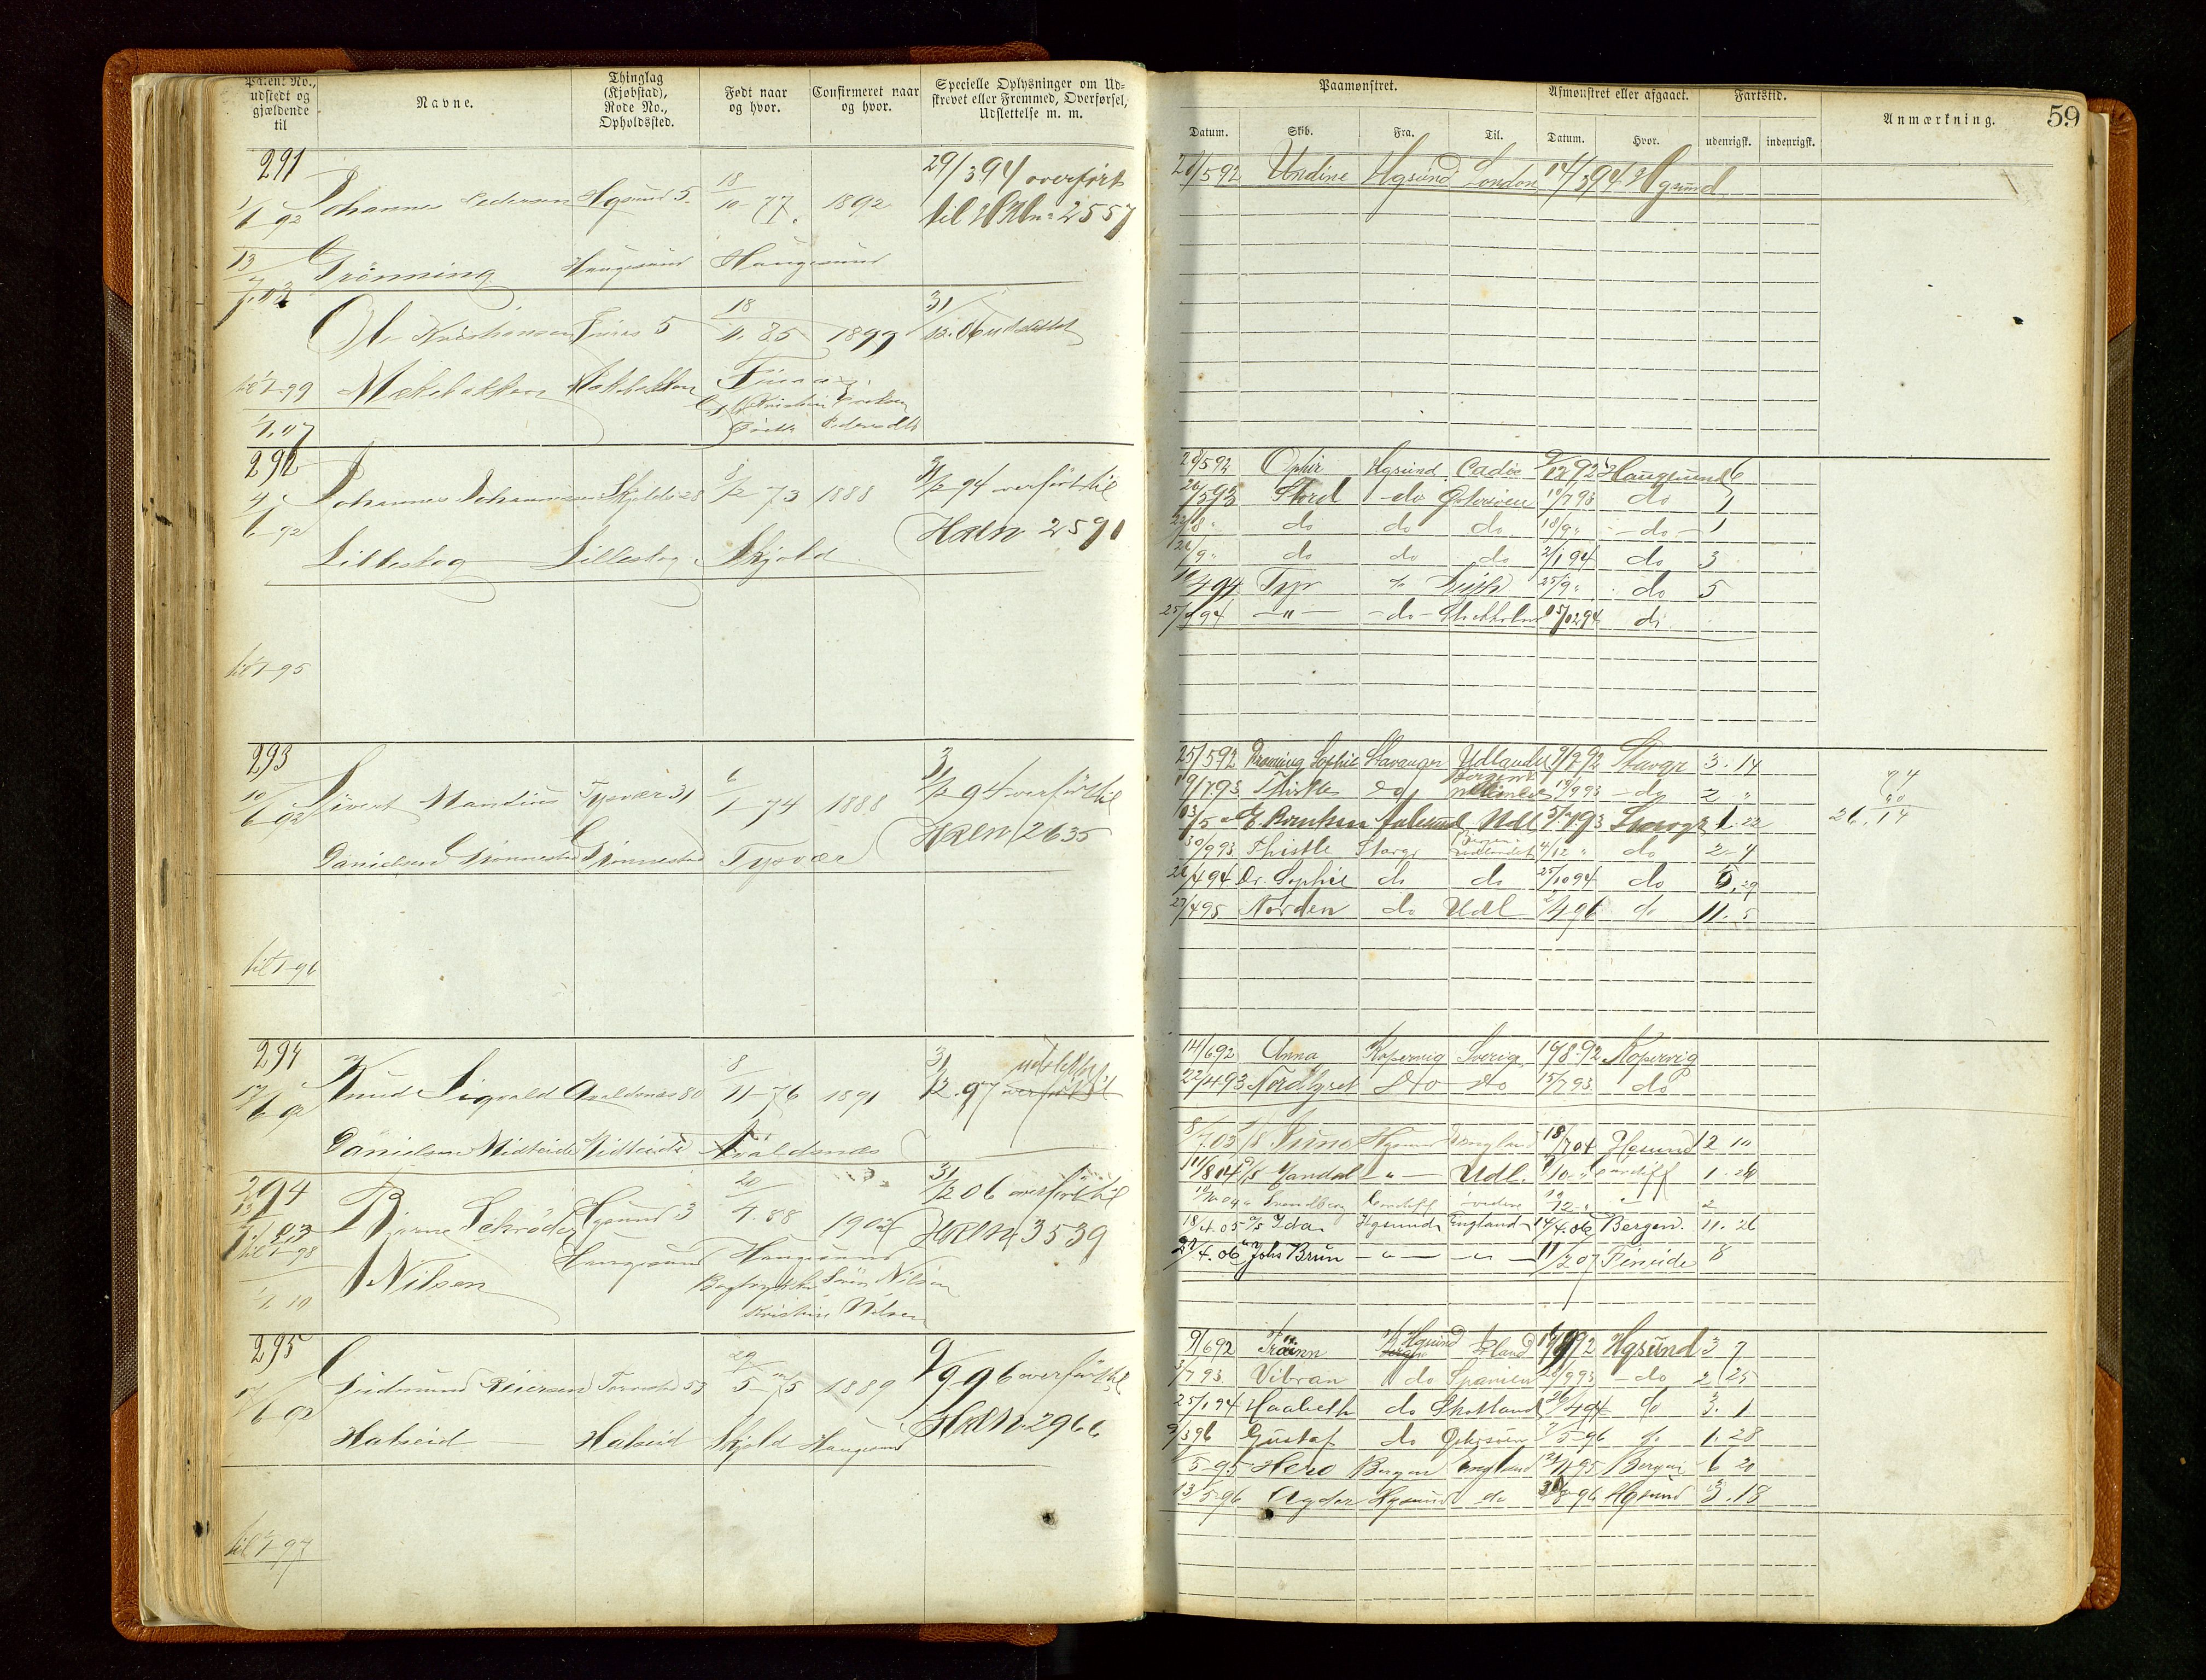 Patent No., udstedt og gjældende til
Navne.
Thinglag (Kjøbstad), Rode No., Opholdssted.
Født naar og hvor.
Confirmeret naar og hvor.
Specielle Oplysninger om Udskrevet eller Fremmed, Overførsel, Udslettelse m. m.
291
Johannes Pedersen Hgsund 5. 18/10-77. 1892 29/3 94 overført
1/6-92 til HRLn 2557
13/7.03 Grönning Haugesund Haugesund
Ole Kristiansen 5 18/4.85 1899 31/12.06 udslettet
til 1/1-99
1/1.07
292
4/6-92 Johannes Johannessen Skjold 28 8/2 73 1888 31/12 94 overført til
HRLn 2591
Lilleskog Lilleskog Skjold
til 1/1-95
293
10/6-92 Sivert Mandius Tysvær 31 6/1-74 1888 31/12 94 overført til
HRLn 2635
Danielsen Grönnestad Grönnestad Tysvær
til 1/1-96
294
17/6 92 Knud Sigvald Avaldsnes 80 8/11-76 1891 31/12.97 udslettet
overført til
Danielsen Midteide Midteide Avaldsnes
294
Bjarne Schröder Hgsund 3 20/4.88 1902 31/12 06 overført til
HRLn 3539
til 1/1-98
Nilsen Haugesund Haugesund
Nilsen
Kristine Nilsen
1/1.10
295
17/6-92 Gudmund Reiersen Torvestad 53 29/5-75 1889 9/9-96 overført til
HRLn 2966
Halseid Halseid Skjold Haugesund
til 1/1-97
59
Paamønstret.
Afmønstret eller afgaaet.
Fartstid.
Anmærkning.
Datum. Skib. Fra. Til. Datum. Hvor. udenrigsk. indenrigsk.
21/5 92 Undine Hgsund London 14/3 94 Hgsund
28/5 92 Ophir Hgsund Cadix 9/12 92 Haugesund 6
26/5 93 Stord do Østersöen 19/7 93 do 1
22/8 " do do do 18/9 " do 1
26/9 " do do do 2/1 94 do 3
10/4 94 Tyr do Leith 25/9 " do 5
25/9 94 " do Stockholm do
25/5 92 Dronning Sophie Stavanger Udlandet 9/7 92 Stavgr 3.14
19/7 93 Thistle do 19/9 93 do 2 "
Aalesund Udl Stavgr 1.22
30/9 93 Thistle Stavgr Bergen Udlandet 4/12 " do 2-4
26/4 94 Dr. Sophie do do 25/10 94 do 5.29
27/4 95 Norden do Udl 2/4 96 do 11.5
26.14
14/6 92 Anna Kopervig Sverige 19/8.92 Kopervig
22/4 93 Nordlyset do do 15/7 93 do
8/7.03 Juno Hgsund England 18/7 04 Hgsund 12 10
11/8 04 Mandal " Udl. Cardiff 1.26
Svendborg Cardiff 2
18/4.05 Ida Hgsund England 14/4.06 Bergen. 11.26
27/4.06 Johs Brun " " 11/2 07 Fineide 8
9/6 92 Träinn Hgsund 92 Hgsund 3 9
3/7 93 Vibran do Spanien 28/9 93 do 2 25
25/1 94 Haabeth do Skotland 26/4 94 do 3.1
9/3 96 Gustaf do Østersöen 7/5-96 do 1.28
5-95 Hero Bergen England 95 Bergen 6 20
13/5-96 Agder Hgsund do 31/8-96 Hgsund 3.18